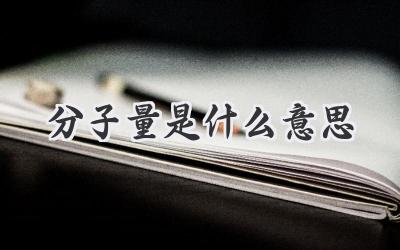 分子量是什么意思